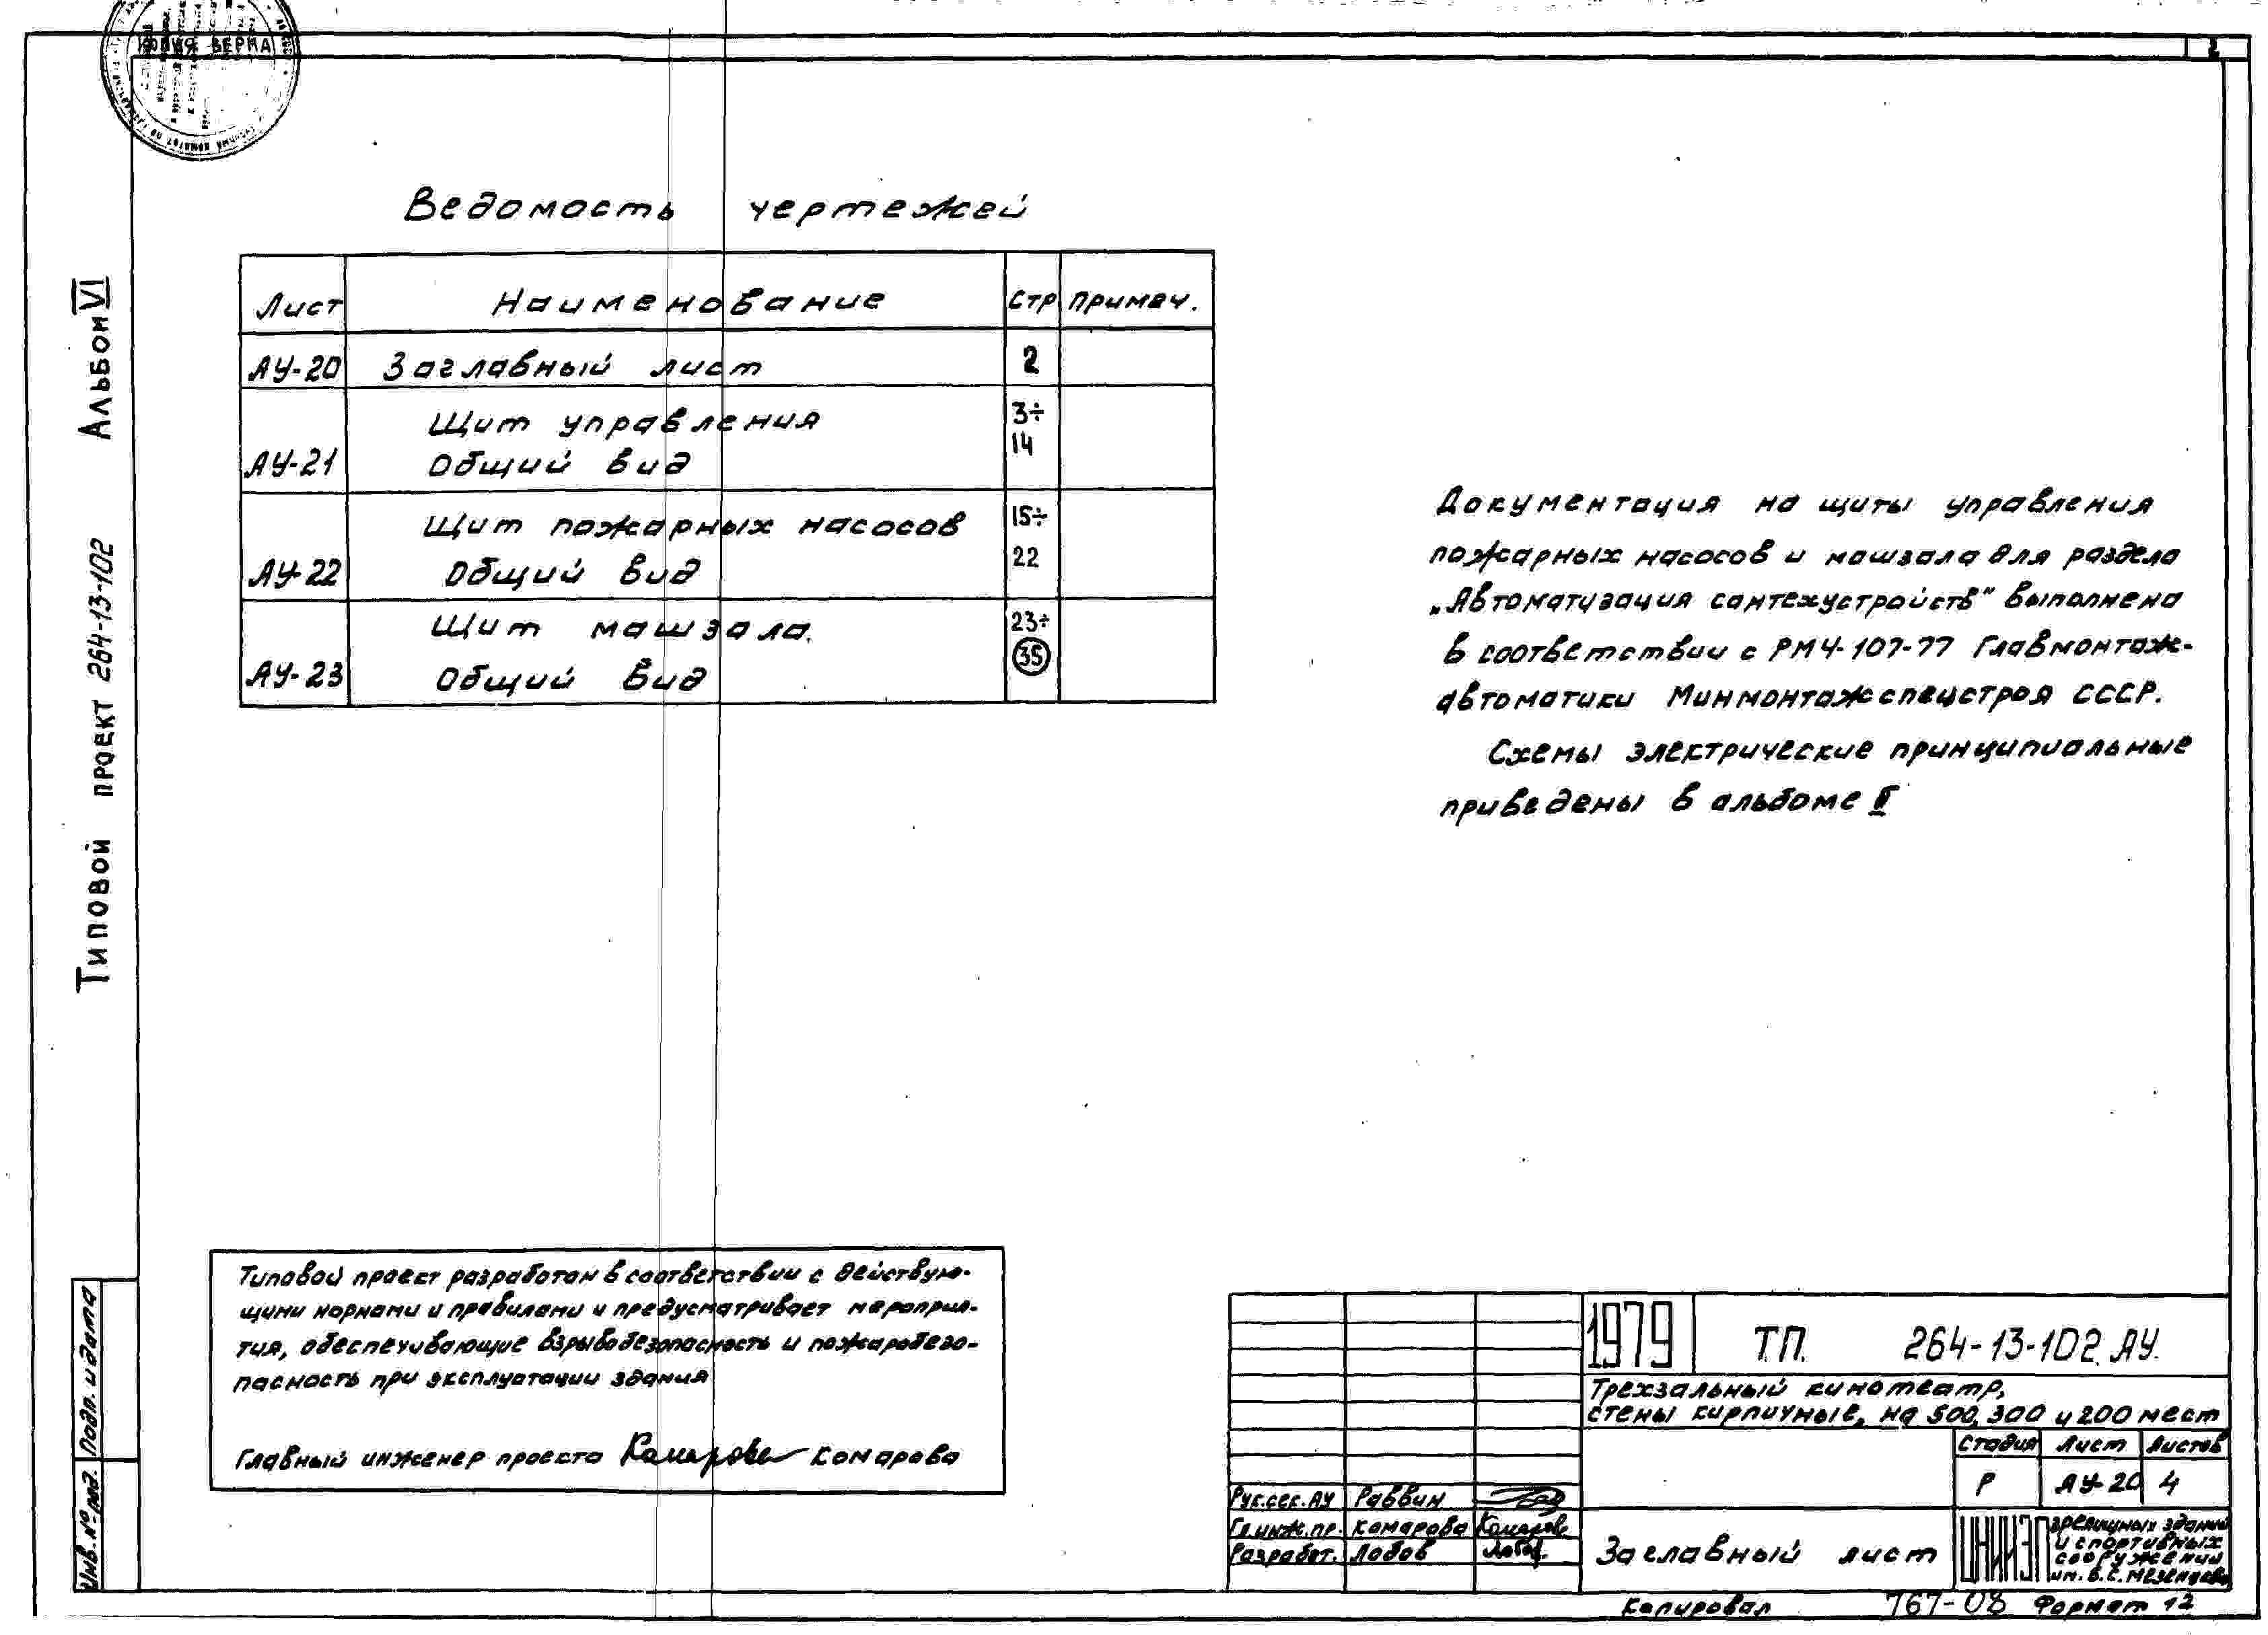 КОПИЯ ВЕРНА
2
Альбом VI
Типовой проект 264-13-102
Ведомость чертежей
Лист Наименование Стр Примеч.
АУ-20 Заглавный лист 2
Щит управления 3÷
14
АУ-21 Общий вид
Щит пожарных насосов 15÷
АУ-22 Общий вид 22
Щит машзала. 23÷
35
АУ-23 Общий вид
Документация на щиты управления
пожарных насосов и машзала для раздела
„Автоматизация сантехустройств" выполнена
в соответствии с РМ4-107-77 Главмонтаж-
автоматики Минмонтажспецстроя СССР.
Схемы электрические принципиальные
приведены в альбоме
Типовой проект разработан в соответствии с действую-
щими нормами и правилами и предусматривает мероприя-
тия, обеспечивающие взрывобезопасность и пожаробезо-
пасность при эксплуатации здания
Главный инженер проекта Комарова Комарова
Инв.№ под. Подп. и дата
1979 Т.П. 264-13-102. АУ.
Трехзальный кинотеатр,
стены кирпичные, на 500, 300 и 200 мест
Стадия Лист Листов
Р АУ-20 4
Рук.сек.АУ Раввин
Гл.инж.пр. Комарова Комарова
Разработ. Лобов Лобов
Заглавный лист
ЦНИИЭП зрелищных зданий
и спортивных
сооружений
им. Б.С. Мезенцева
Копировал 767-08 Формат 12